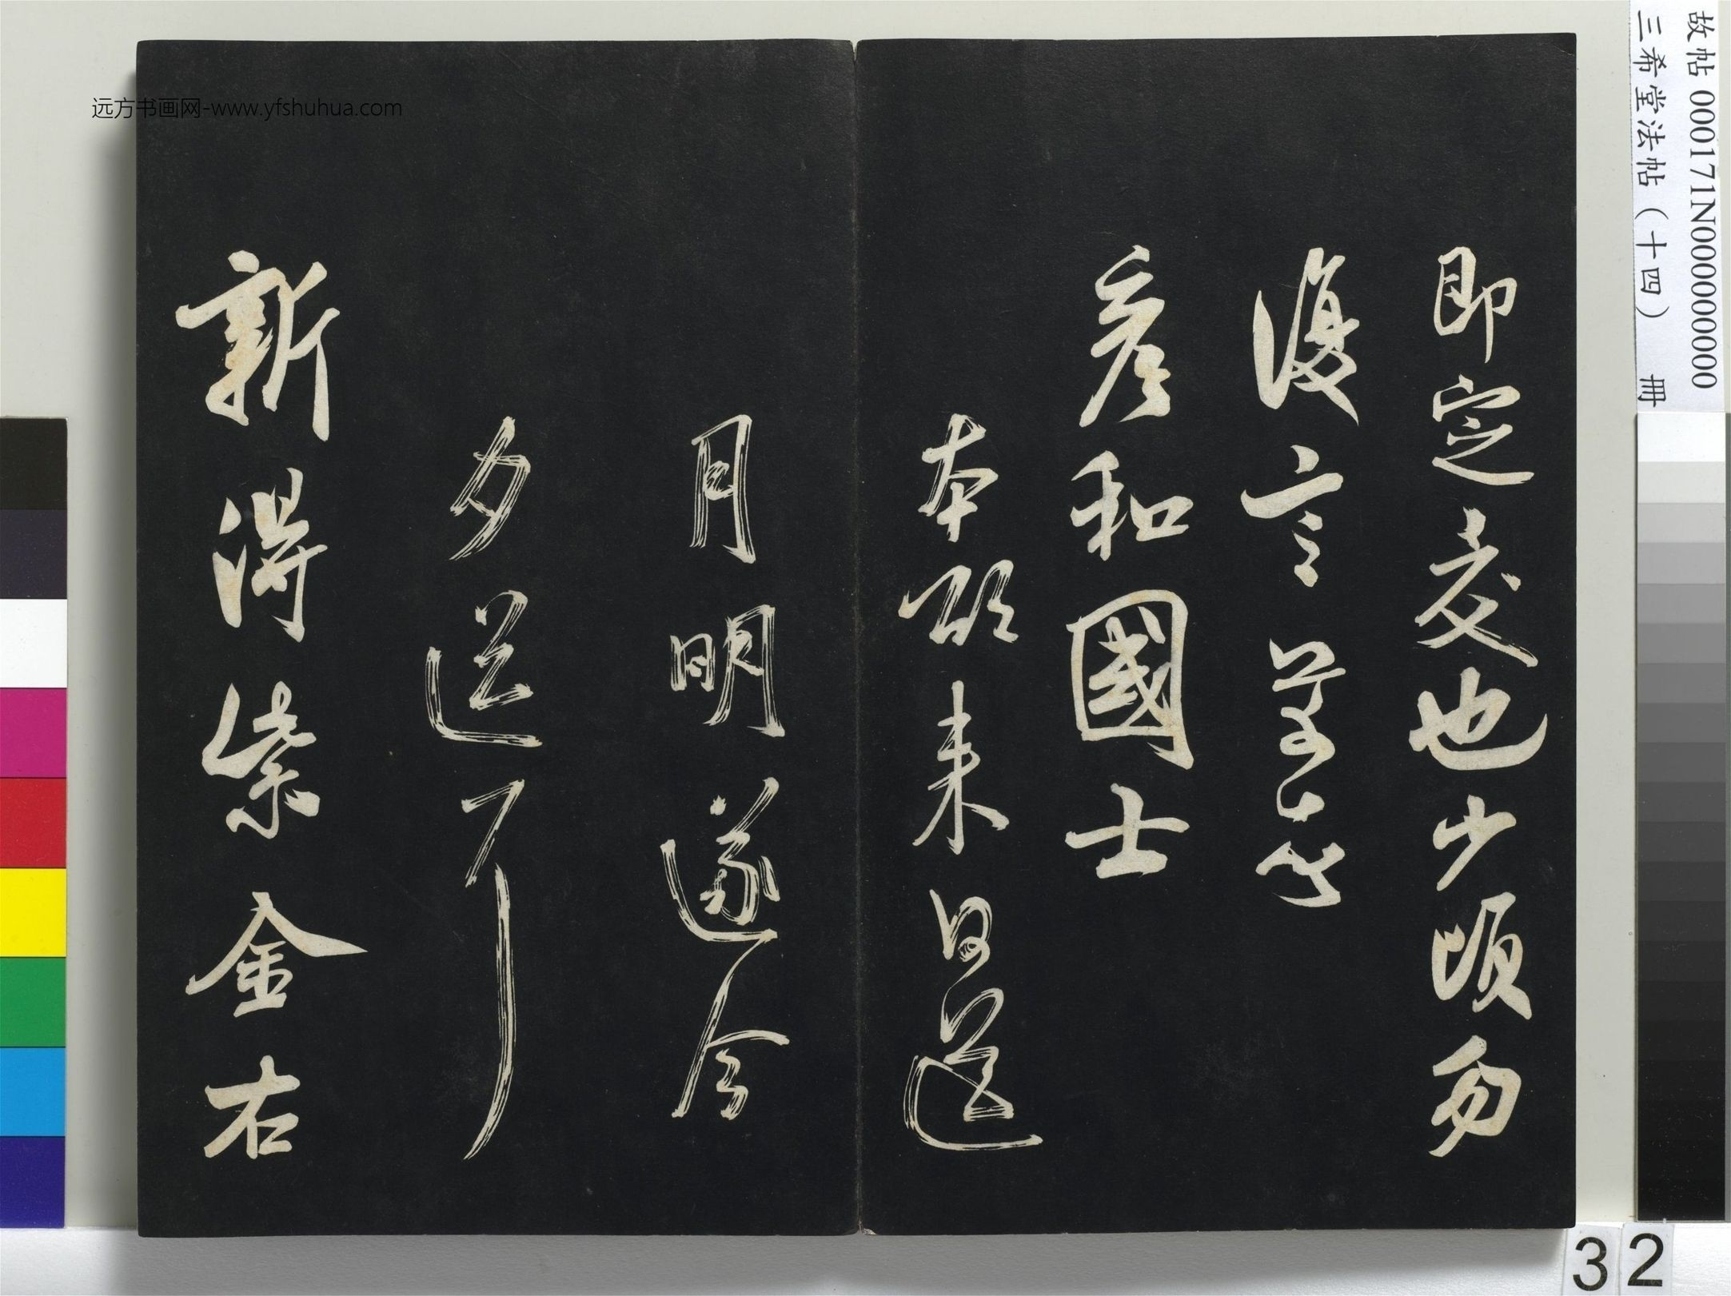 即定交也少頃勿
復言芾頓首
彥和國士
本欲来日送
月明遂今
夕送耳
新得紫金右
远方书画网-www.yfshuhua.com
故帖 000171N000000000
三希堂法帖（十四） 冊
32